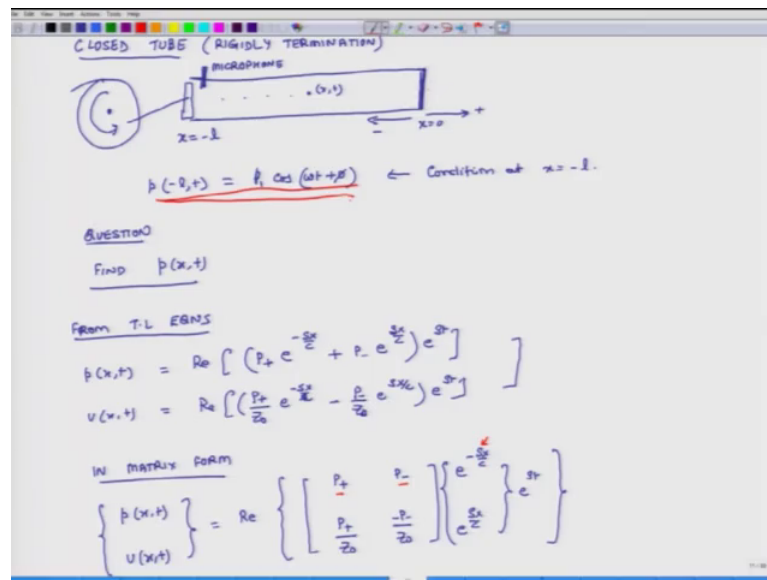 CLOSED TUBE (RIGIDLY TERMINATION)
MICROPHONE
(x,t)
x=-l
x=0
+
-
p(-l,t) = P₁ cos(ωt+φ) ← Condition at x=-l.
QUESTION
FIND p(x,t)
FROM T.L EQNS
p(x,t) = Re [ (P₊ e^{-sx/c} + P₋ e^{sx/c}) e^{st} ]
U(x,t) = Re [ (P₊/Z₀ e^{-sx/c} - P₋/Z₀ e^{sx/c}) e^{st} ]
IN MATRIX FORM
{ p(x,t) U(x,t) } = Re { [ P₊ P₋ P₊/Z₀ -P₋/Z₀ ] { e^{-sx/c} e^{sx/c} } e^{st} }